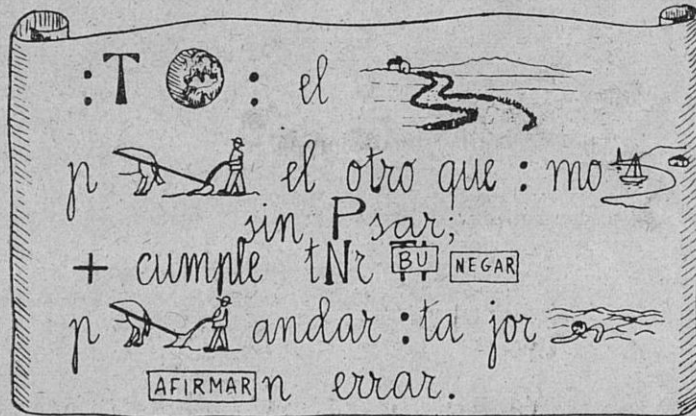 :T : el
p el otro que : mo
sin Psar,
+ cumple tNr BU NEGAR
p andar :ta jor
AFIRMAR n errar.